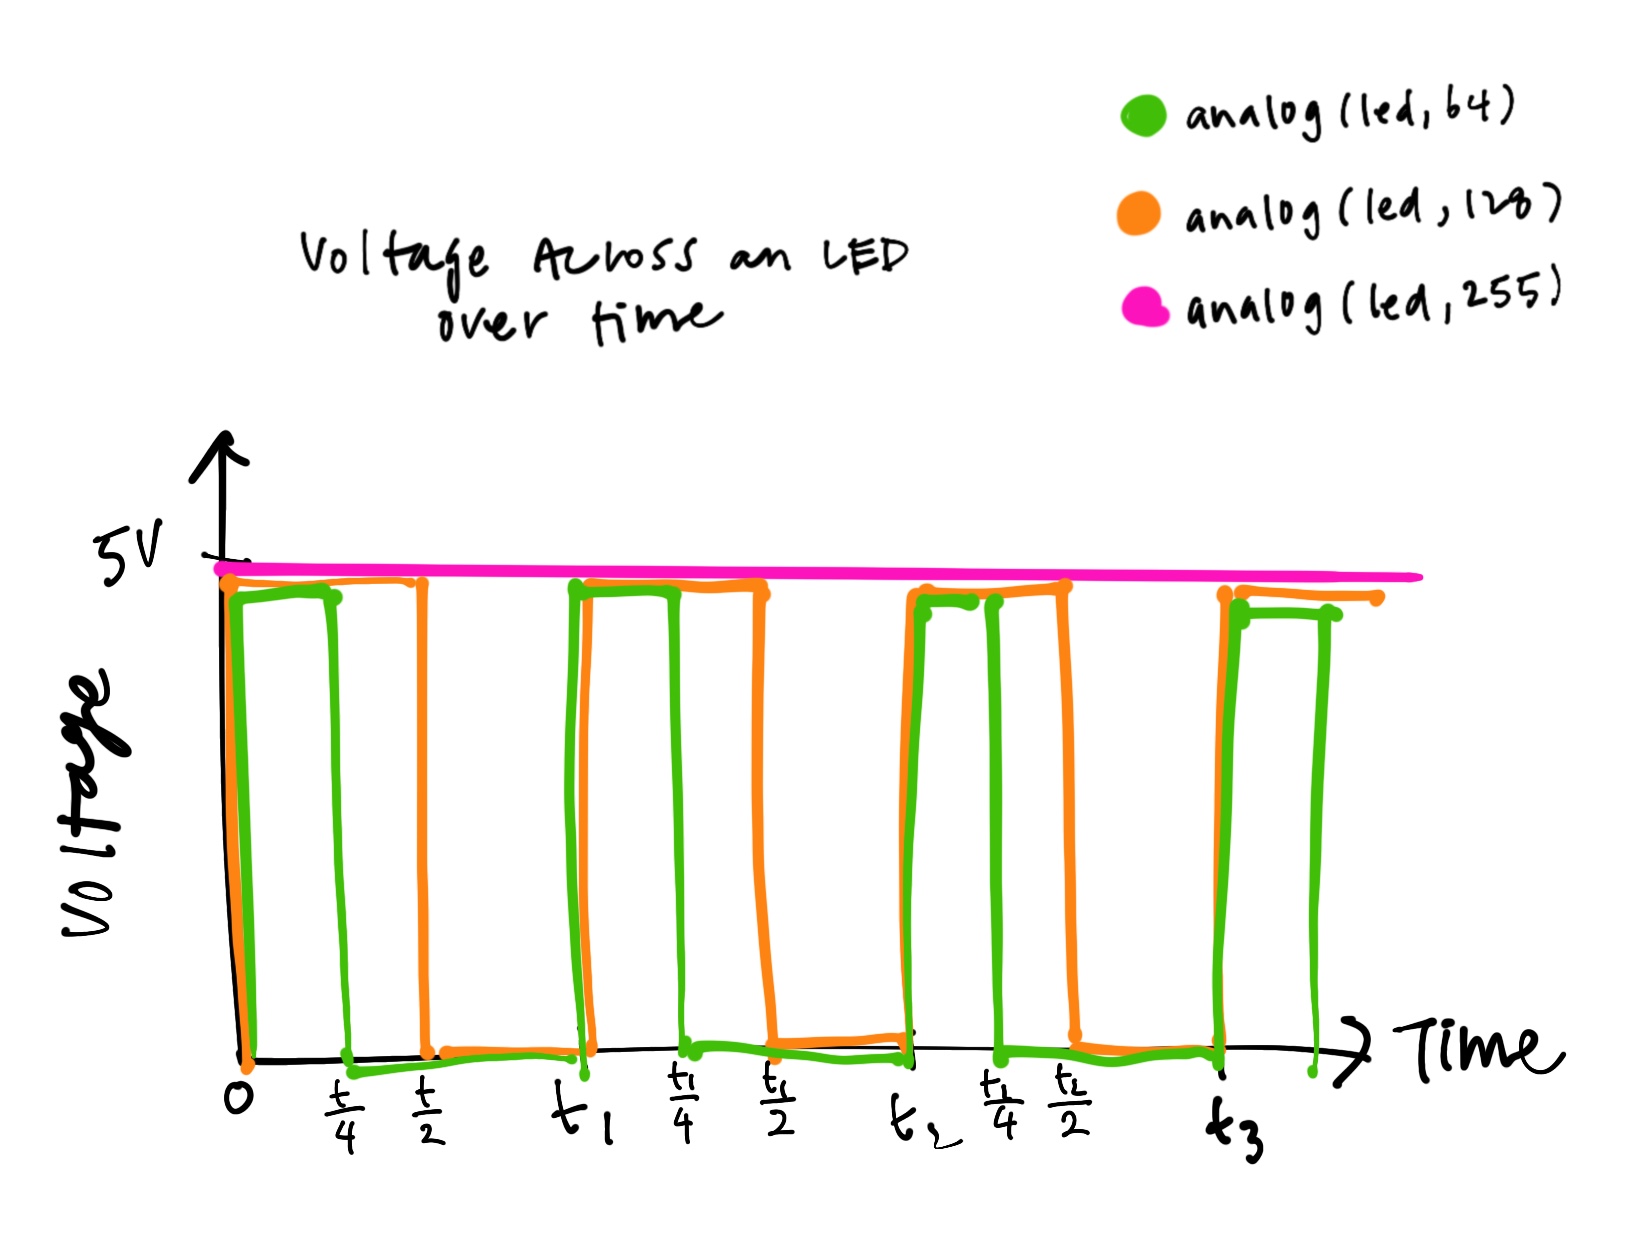 analog(led, 64)
analog(led, 128)
analog(led, 255)
Voltage Across an LED
over time
5V
Voltage
Time
0
t/4
t/2
t1
t1/4
t1/2
t2
t2/4
t2/2
t3